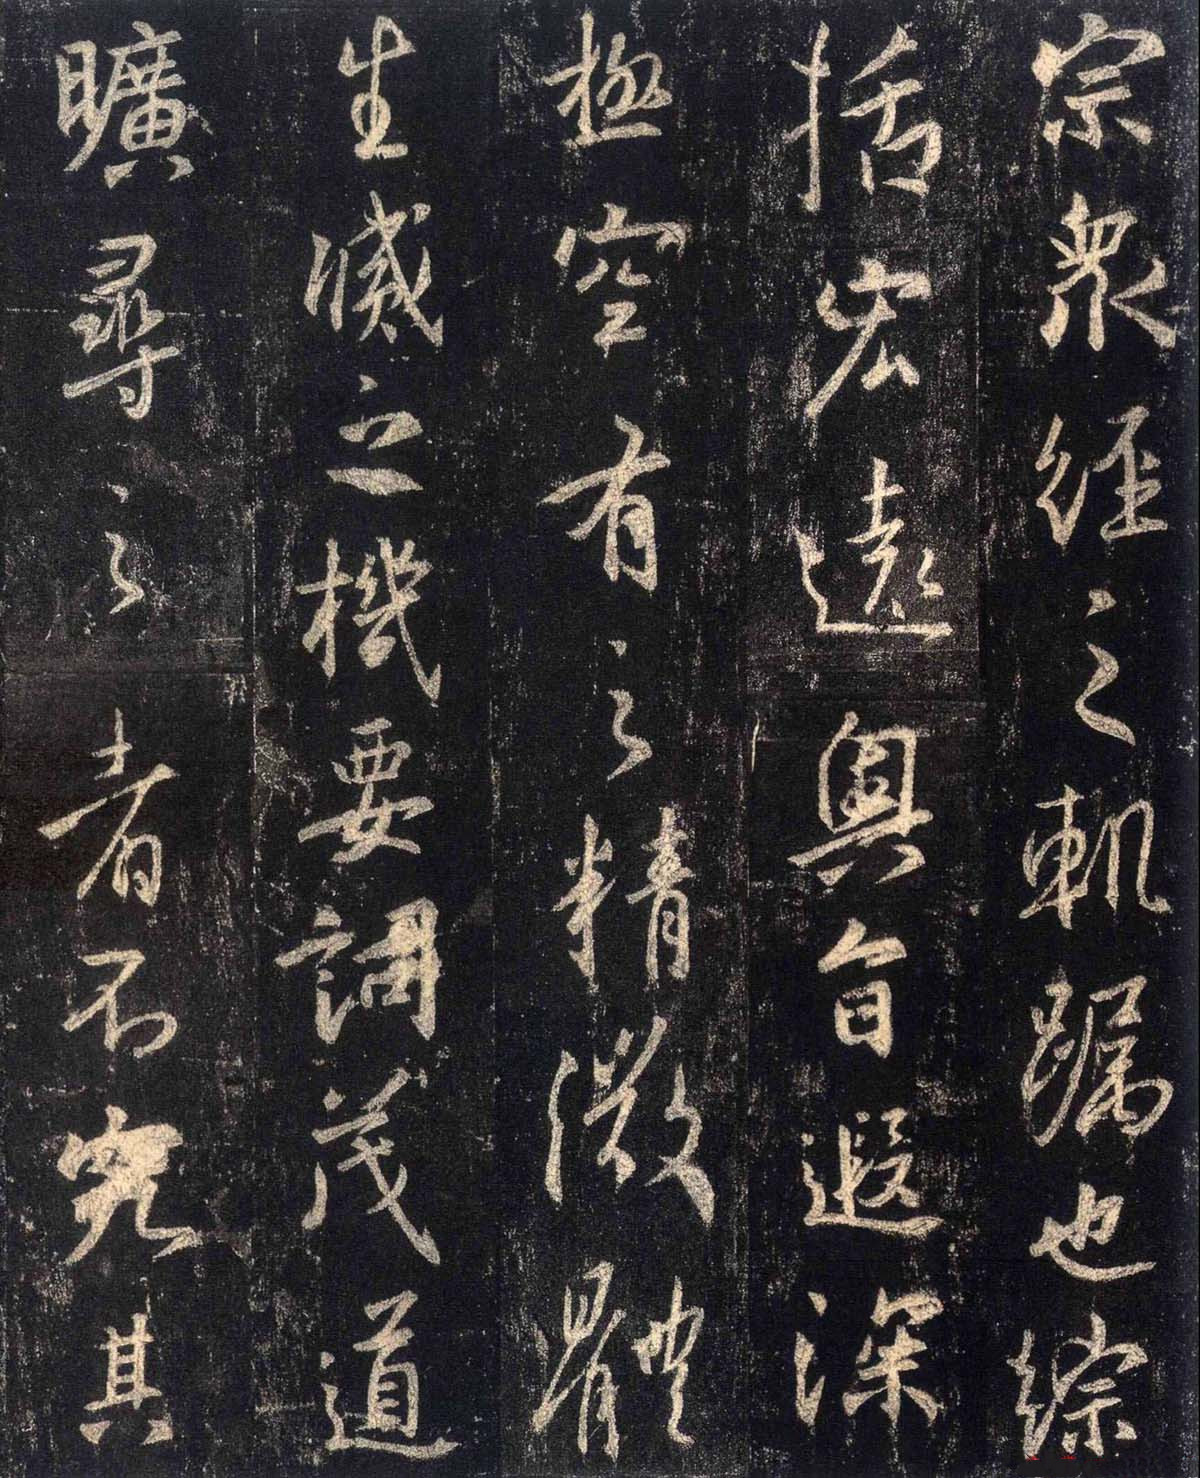 宗衆經之軌躅也綜
括宏遠奧旨遐深
極空有之精微體
生滅之機要詞茂道
曠尋之者不究其